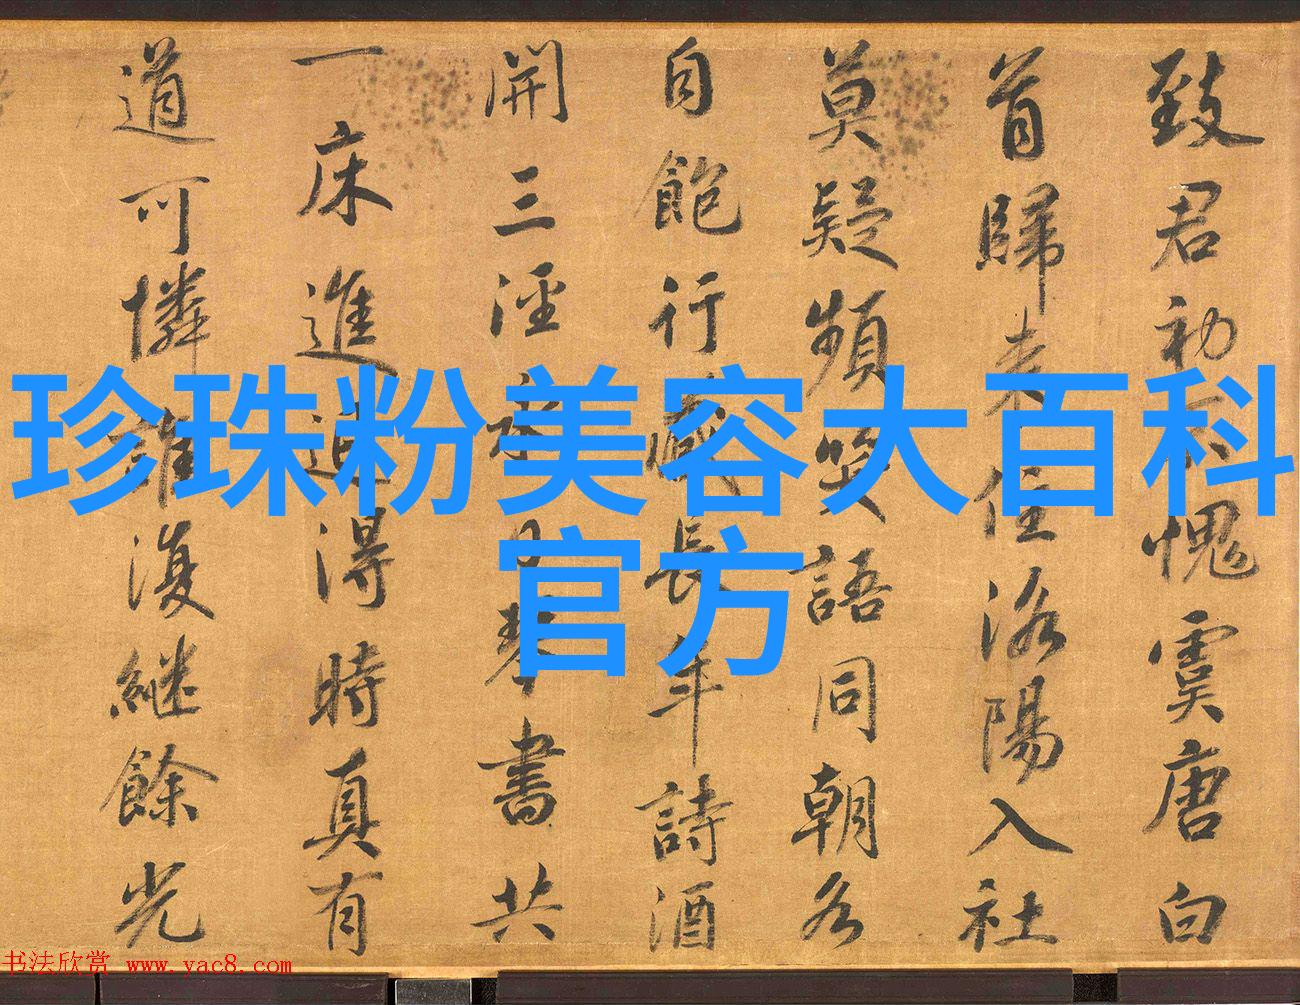 珍珠粉美容大百科
官方
致君初不愧虞唐白
首歸来住洛陽入社
莫疑頻笑語同朝各
自飽行藏長年詩酒
開三徑永日琴書共
一床進退得時真有
道可憐誰復継餘光
书法欣赏 www.yac8.com